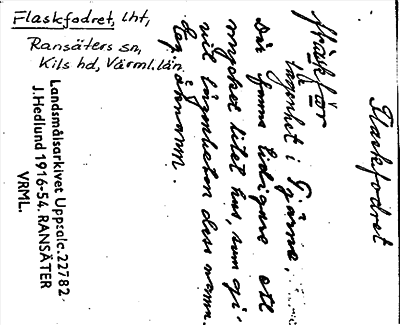 Flaskfodret, lht,
Ransäters sn,
Kils hd, Värml. län
Landsmålsarkivet Uppsala. 22782.
J. Hedlund 1916-54. RANSÄTER
VRML.
Flaskfodret
lägenhet i
Där fanns tidigare ett
mycket litet hus, som gi-
vit lägenheten dess namn.